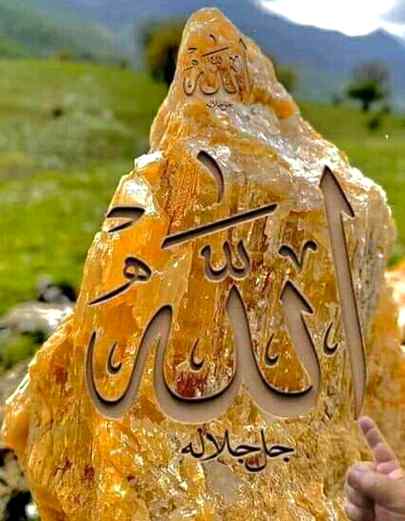 الله
الله
جل جلاله